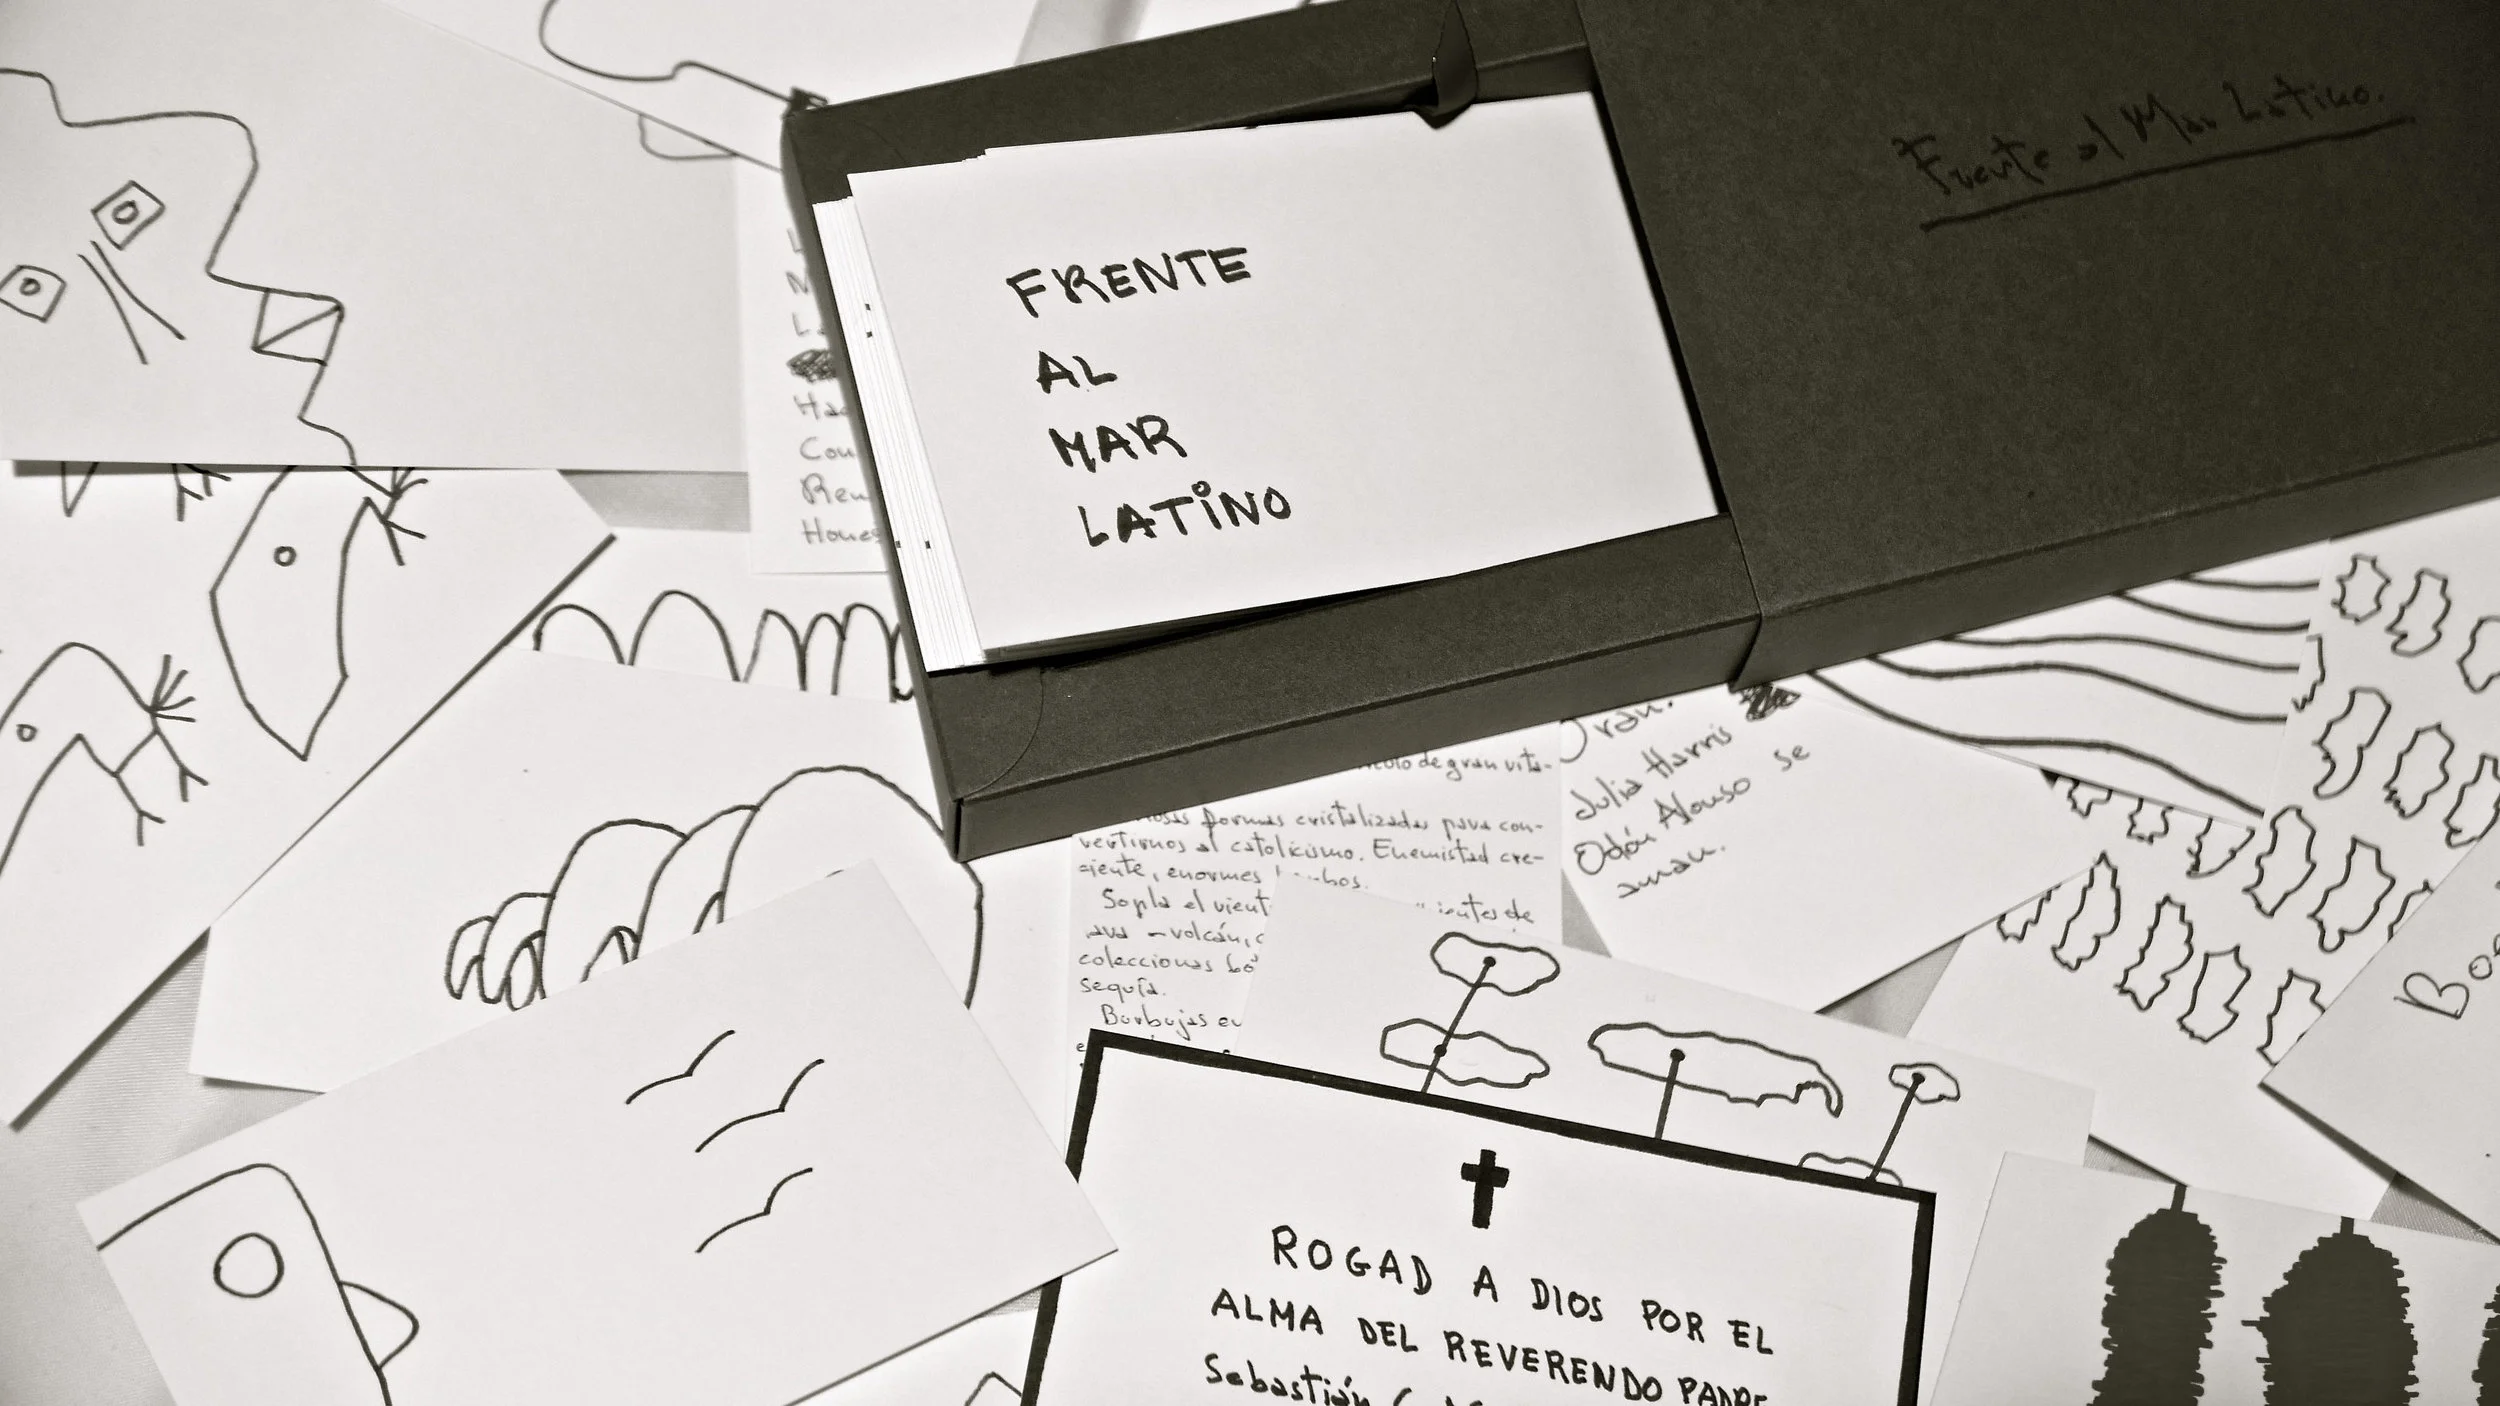 Frente al Mar Latino.
FRENTE
AL
MAR
LATINO
Cou
Ren
Hones
de gran vita-
formas cristalizadas para con-
vertirnos al catolicismo. Enemistad cre-
ciente, enormes
Sopla el vient
volcán, c
colecciones
sequía.
Burbujas en
Julia Harris
Odón Alonso se
aman.
ROGAD A DIOS POR EL
ALMA DEL REVERENDO PADRE
Sebastián